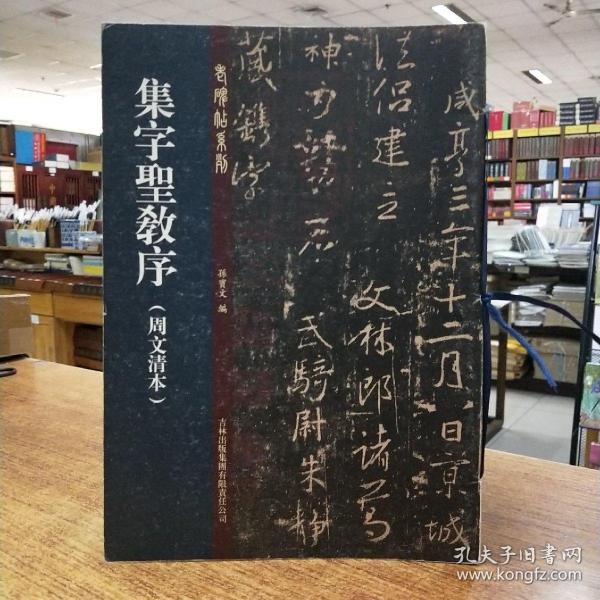 集字聖教序
（周文清本）
老碑帖系列
孫寶文 編
吉林出版集團有限責任公司
咸亨三年十二月八日京城
法侣建立 文林郎諸葛
神力勒石 武騎尉朱静
藏鐫字
孔夫子旧书网
www.kongfz.com